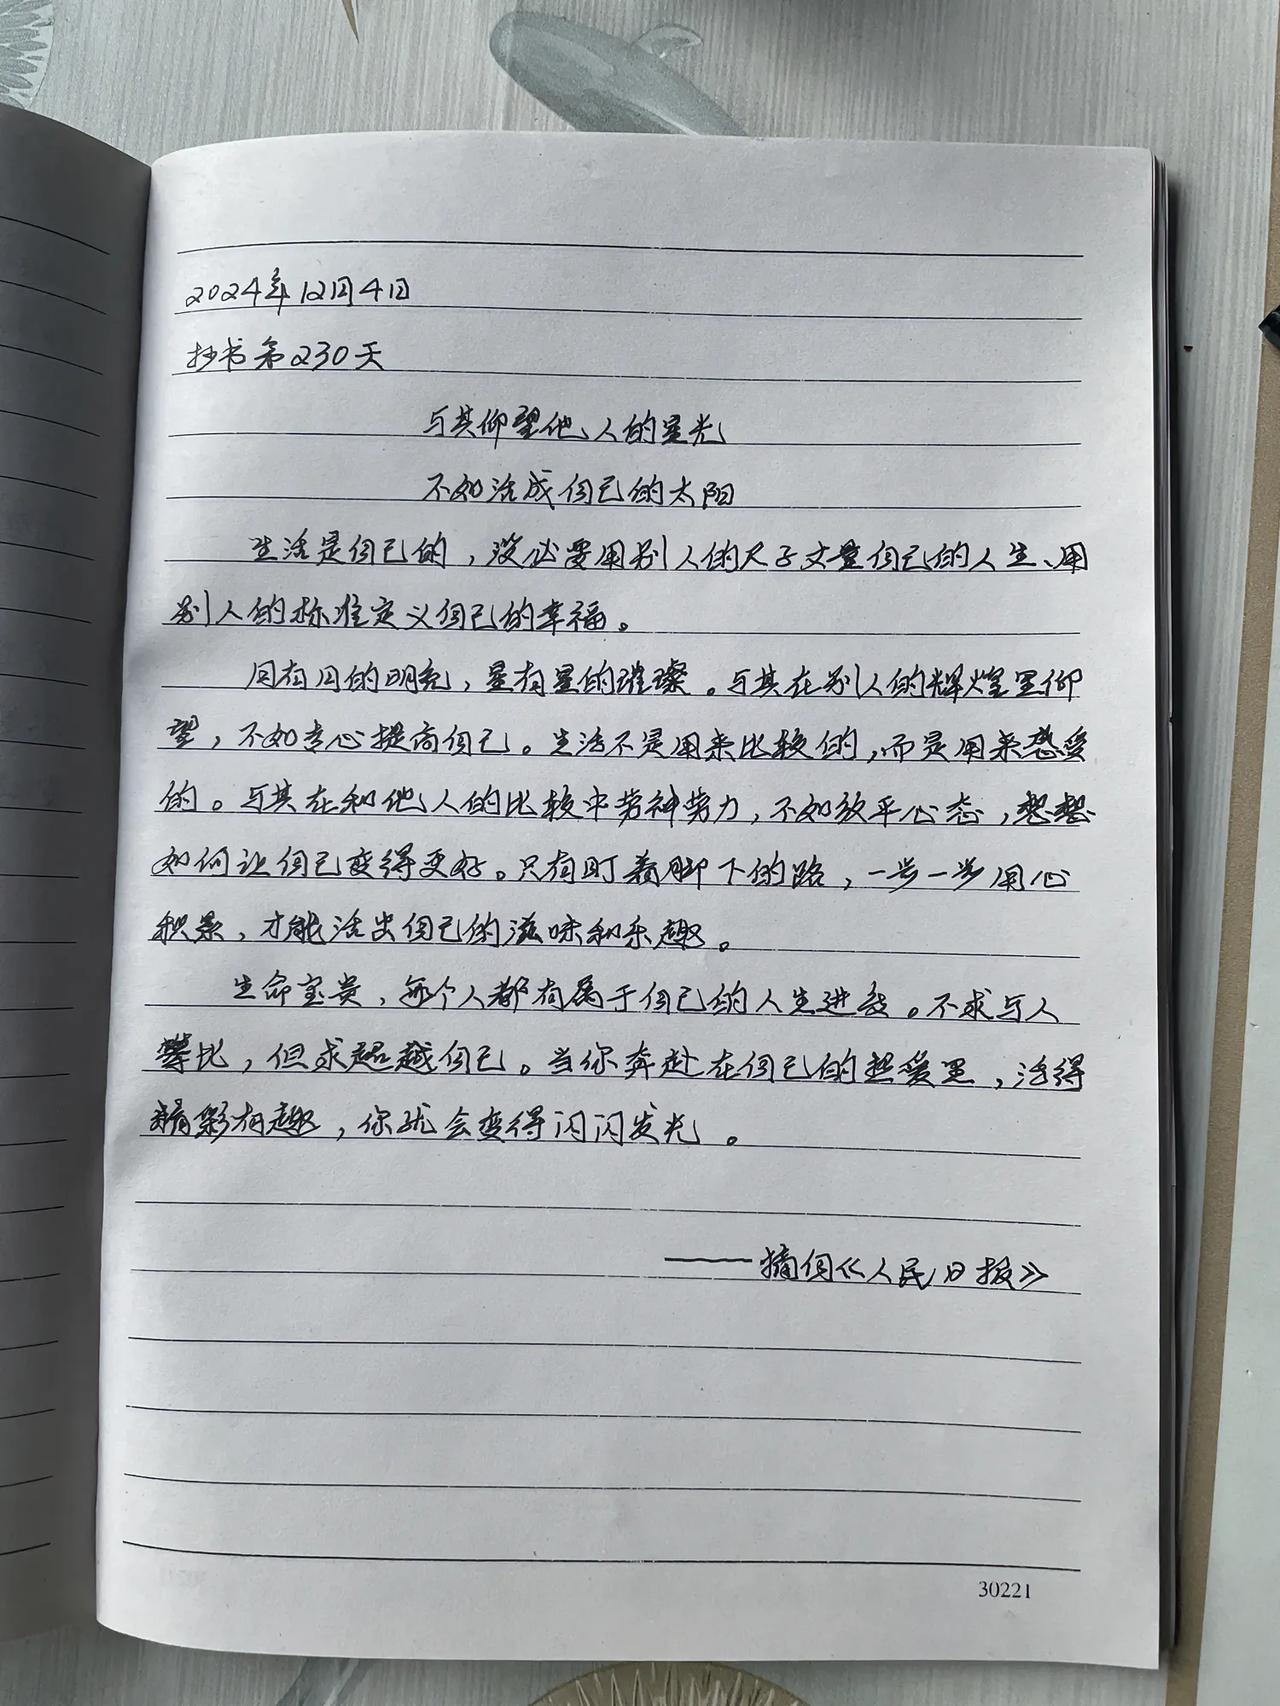 2024年12月4日
抄书第230天
与其仰望他人的星光
不如活成自己的太阳
生活是自己的，没必要用别人的尺子丈量自己的人生、用
别人的标准定义自己的幸福。
月有月的明亮，星有星的璀璨。与其在别人的辉煌里仰
望，不如专心提高自己。生活不是用来比较的，而是用来感受
的。与其在和他人的比较中劳神劳力，不如放平心态，想想
如何让自己变得更好。只有盯着脚下的路，一步一步用心
积累，才能活出自己的滋味和乐趣。
生命宝贵，每个人都有属于自己的人生进度。不求与人
攀比，但求超越自己。当你奔赴在自己的热爱里，活得
精彩有趣，你就会变得闪闪发光。
——摘自《人民日报》
30221